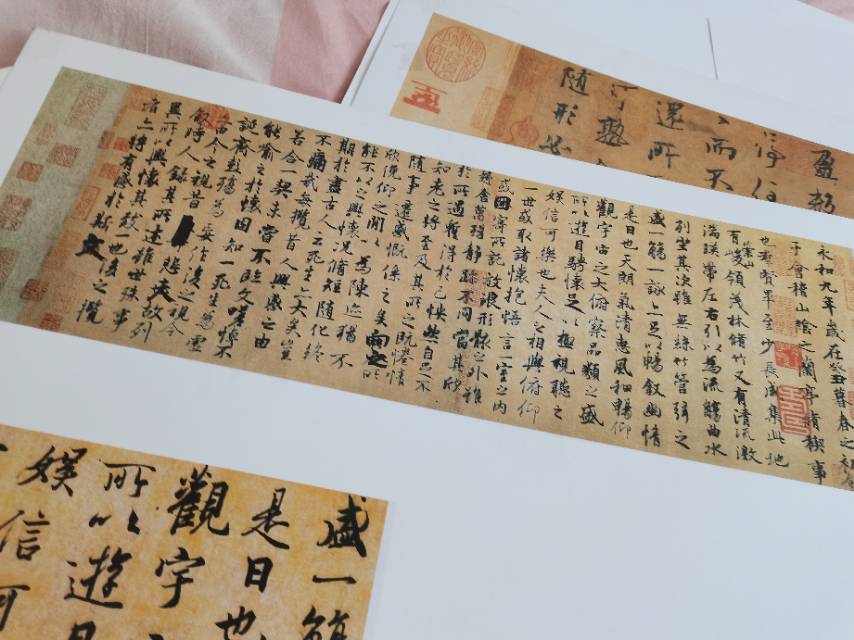 而不
還所
随形
永和九年歲在癸丑暮春之初會
于會稽山陰之蘭亭脩禊事
也群賢畢至少長咸集此地
有崇山峻領茂林脩竹又有清流激
湍暎帶左右引以為流觴曲水
列坐其次雖無絲竹管弦之
盛一觴一詠亦足以暢敘幽情
是日也天朗氣清惠風和暢仰
觀宇宙之大俯察品類之盛
所以遊目騁懷足以極視聽之
娛信可樂也夫人之相與俯仰
一世或取諸懷抱悟言一室之內
或因寄所託放浪形骸之外雖
趣舍萬殊靜躁不同當其欣
於所遇暫得於己快然自足不
知老之將至及其所之既惓情
隨事遷感慨係之矣向之所
欣俛仰之間以為陳跡猶不
能不以之興懷況脩短隨化終
期於盡古人云死生亦大矣豈
不痛哉每攬昔人興感之由
若合一契未嘗不臨文嗟悼不
能喻之於懷固知一死生為虛
誕齊彭殤為妄作後之視今
亦由今之視昔悲夫故列
敘時人錄其所述雖世殊事
異所以興懷其致一也後之攬
者亦將有感於斯文
盛一觴
是日也
觀宇
所以遊目
娛信可